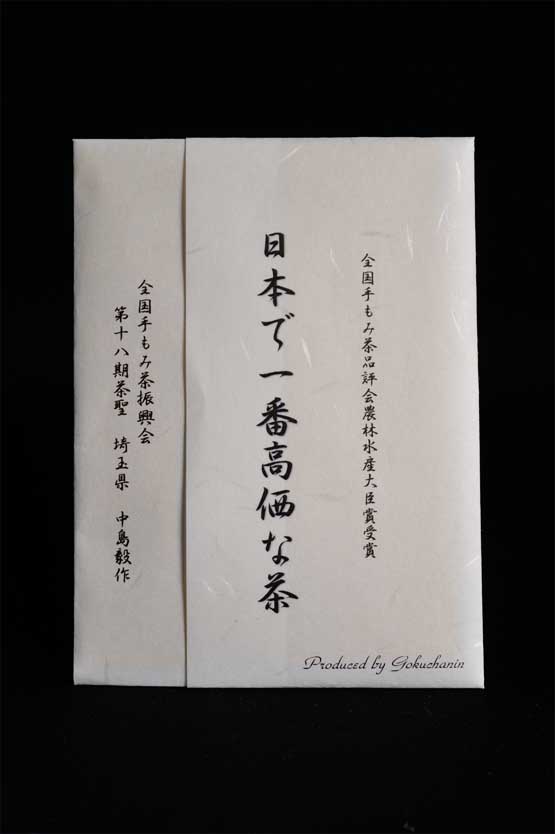 全国手もみ茶品評会農林水産大臣賞受賞
日本で一番高価な茶
全国手もみ茶振興会
第十八期茶聖 埼玉県 中島毅作
Produced by Gokuchanin